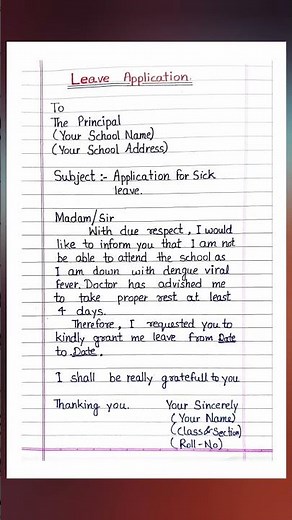 Leave Application.
To
The Principal
(Your School Name)
(Your School Address)
Subject :- Application for Sick
leave.
Madam/Sir
With due respect, I would
like to inform you that I am not
be able to attend the school as
I am down with dengue viral
fever. Doctor has advished me
to take proper rest at least
4 days.
Therefore, I requested you to
kindly grant me leave from Date
to Date.
I shall be really grateful to you
Thanking you. Your Sincerely
(Your Name)
(Class & Section)
(Roll-No)